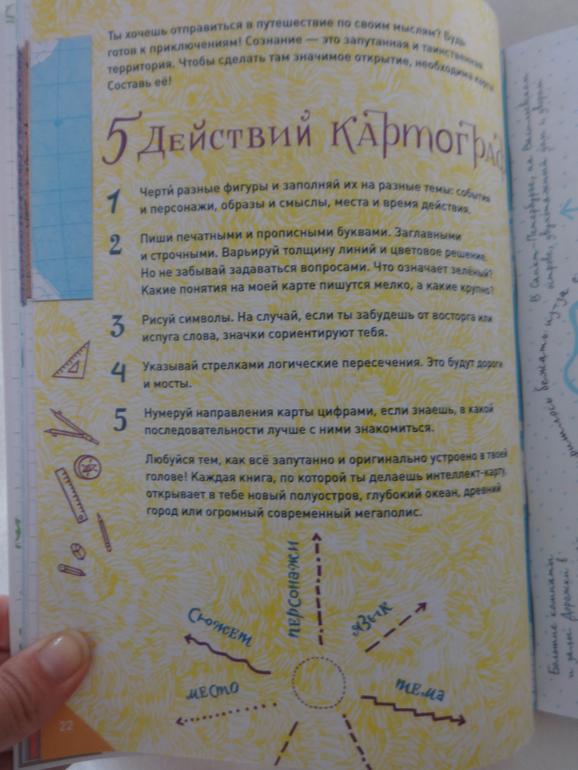 Ты хочешь отправиться в путешествие по своим мыслям? Будь
готов к приключениям! Сознание — это запутанная и таинственная
территория. Чтобы сделать там значимое открытие, необходима карта.
Составь её!
5 Действий картограф
1 Черти́ разные фигуры и заполняй их на разные темы: события
и персонажи, образы и смыслы, места и время действия.
2 Пиши печатными и прописными буквами. Заглавными
и строчными. Варьируй толщину линий и цветовое решение.
Но не забывай задаваться вопросами. Что означает зелёный?
Какие понятия на моей карте пишутся мелко, а какие крупно?
3 Рисуй символы. На случай, если ты забудешь от восторга или
испуга слова, значки сориентируют тебя.
4 Указывай стрелками логические пересечения. Это будут дороги
и мосты.
5 Нумеруй направления карты цифрами, если знаешь, в какой
последовательности лучше с ними знакомиться.
Любуйся тем, как всё запутанно и оригинально устроено в твоей
голове! Каждая книга, по которой ты делаешь интеллект-карту,
открывает в тебе новый полуостров, глубокий океан, древний
город или огромный современный мегаполис.
персонажи
язык
сюжет
место
тема
22
В Санкт-Петербурге, на Васильевском
острове,
бежать из-за
Большие комнаты
и залы. Дорожки в